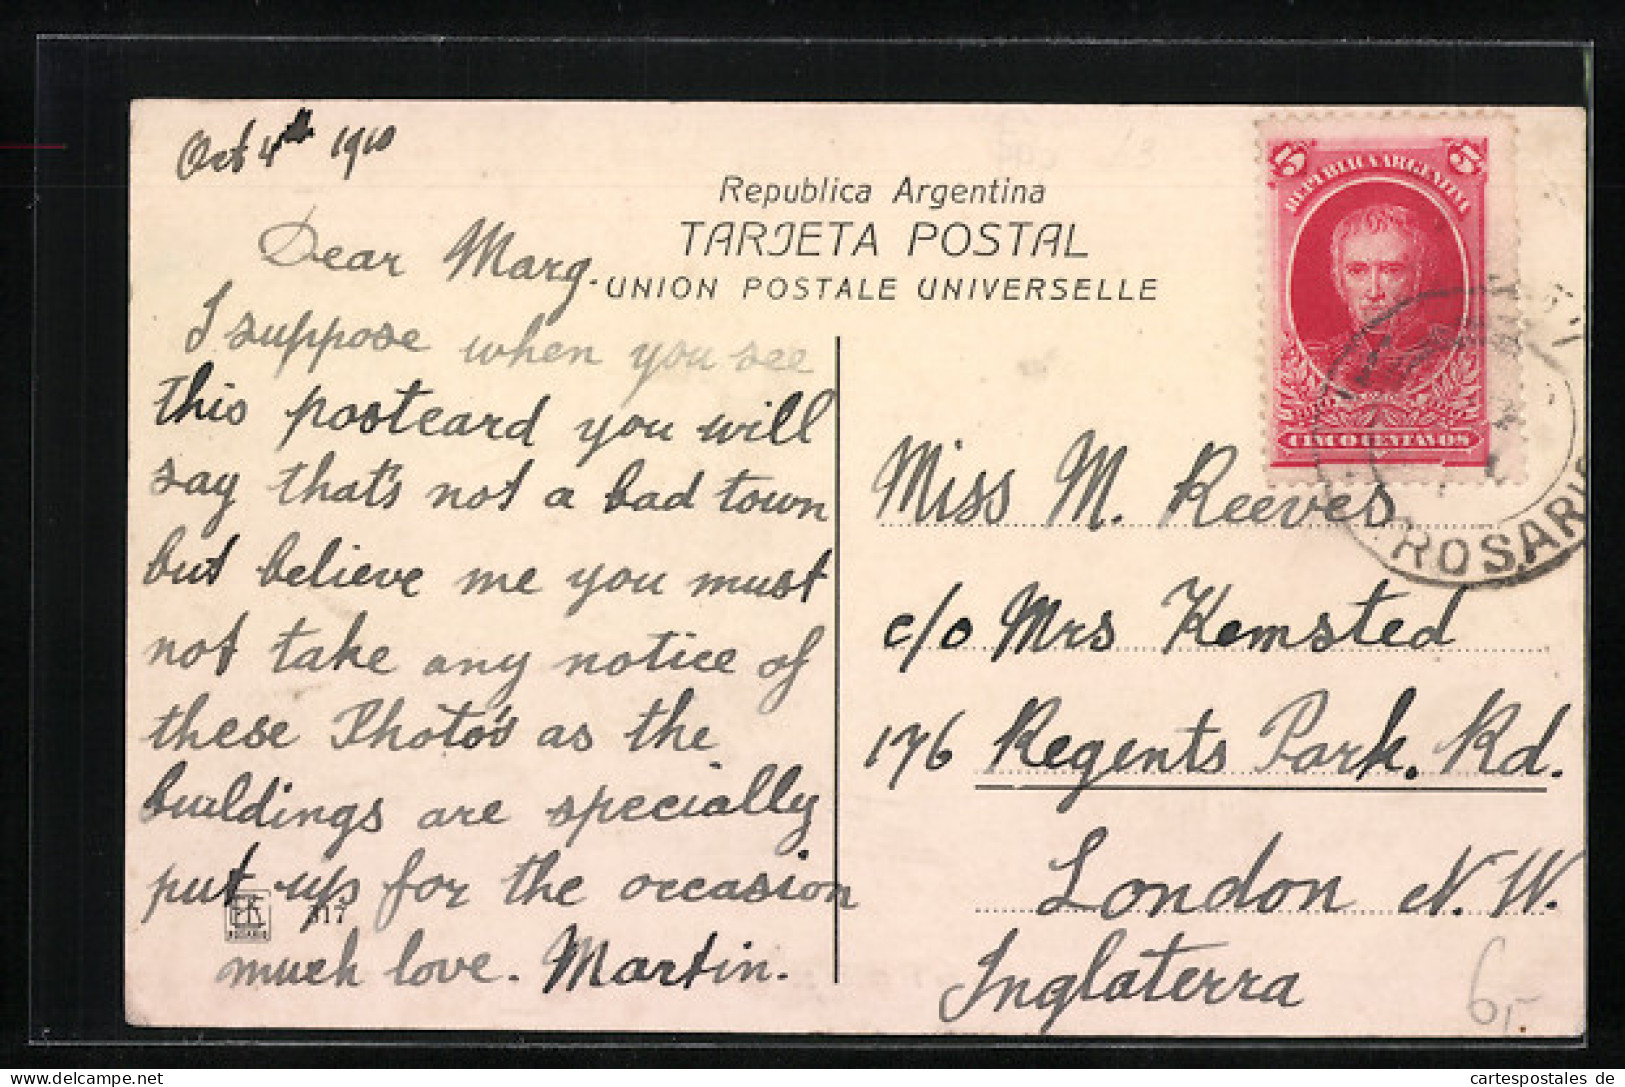 Oct 4th 1910
Republica Argentina
TARJETA POSTAL
UNION POSTALE UNIVERSELLE
Dear Marg.
I suppose when you see
this postcard you will
say that's not a bad town
but believe me you must
not take any notice of
these Photo's as the
buildings are specially
put up for the occasion
much love. Martin.
EK
ROSARIO
317
5 5
REPUBLICA ARGENTINA
CINCO CENTAVOS
ROSARIO
Miss M. Reeves
c/o Mrs Kemsted
176 Regents Park. Rd.
London N.W.
Inglaterra
6,-
cartespostales de